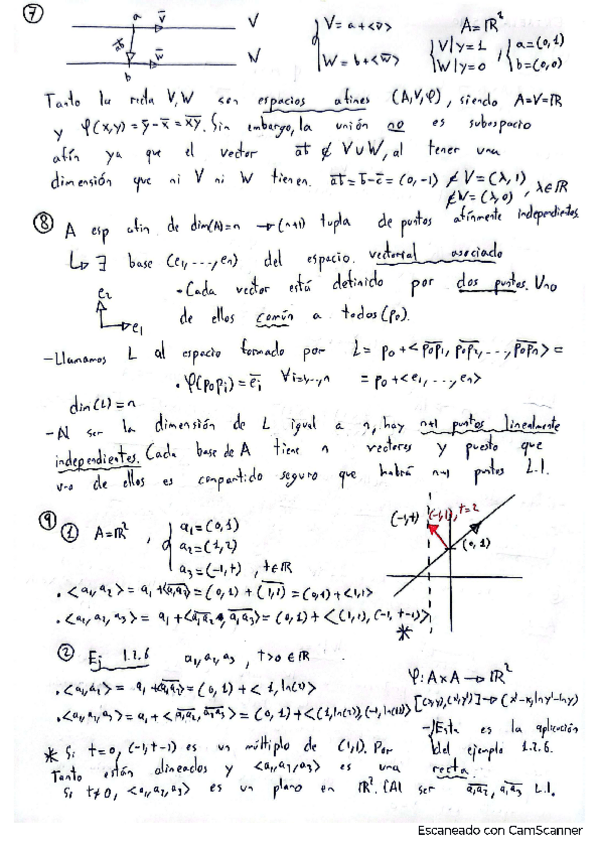 ⑦ a v̄ V { V = a+<v̄> A = ℝ²
W = b+<w̄> { V | y=1 , { a=(0,1)
āb̄ w̄ W W | y=0 b=(0,0)
b
Tanto la recta V, W son espacios afines (A, V, φ), siendo A=V=ℝ
y φ(x,y) = ȳ-x̄ = x̄ȳ. Sin embargo, la unión no es subespacio
afín ya que el vector āb̄ ∉ V∪W, al tener una
dimensión que ni V ni W tienen. āb̄ = b̄-ā = (0,-1) ∉ V = (λ,1)
∉ W = (λ,0) , λ∈ℝ
⑧ A esp afín de dim(A)=n → (n+1) tupla de puntos afínmente independientes
↳ ∃ base (e₁,...,eₙ) del espacio vectorial asociado
e₂ • Cada vector está definido por dos puntos. Uno
e₁ de ellos común a todos (p₀).
- Llamamos L al espacio formado por L = p₀ + <p₀p₁, p₀p₂, ..., p₀pₙ> =
• φ(p₀pᵢ) = ēᵢ ∀i=1,...,n = p₀ + <e₁, ..., eₙ>
dim(L)=n
- Al ser la dimensión de L igual a n, hay n+1 puntos linealmente
independientes. Cada base de A tiene n vectores y puesto que
uno de ellos es compartido seguro que habrá n+1 puntos L.I.
⑨ ① A=ℝ² , { a₁=(0,1)
a₂=(1,2)
a₃=(-1,t) , t∈ℝ
(-1,t) (-1,1), t=2
(0,1)
• <a₁,a₂> = a₁+<a₁a₂> = (0,1)+(1,1) = (0,1)+<1,1>
• <a₁,a₂,a₃> = a₁+<a₁a₂, a₁a₃> = (0,1)+<(1,1),(-1,t-1)>
*
② Ej 1.2.6 a₁,a₂,a₃ , t>0 ∈ℝ
φ: A×A → ℝ²
• <a₁,a₂> = a₁+<a₁a₂> = (0,1)+<1,ln(2)>
[(x,y),(x',y')] → (x'-x, lny'-lny)
• <a₁,a₂,a₃> = a₁+<a₁a₂, a₁a₃> = (0,1)+<(1,ln(2)),(-1,ln(t))>
→ Esta es la aplicación
del ejemplo 1.2.6.
* Si t=0, (-1,t-1) es un múltiplo de (1,1). Por
Tanto están alineados y <a₁,a₂,a₃> es una recta.
Si t≠0, <a₁,a₂,a₃> es un plano en ℝ². (Al ser a₁a₂, a₁a₃ L.I.
Escaneado con CamScanner